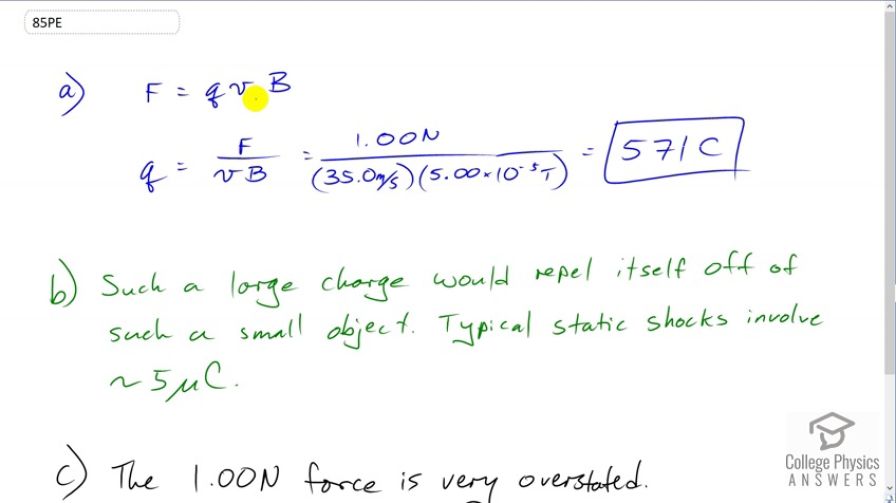 85PE
a) F = qvB
q = F / vB = 1.00N / (35.0m/s)(5.00×10⁻⁵T) = 571C
b) Such a large charge would repel itself off of
such a small object. Typical static shocks involve
~5μC.
c) The 1.00N force is very overstated.
College Physics
ANSWERS